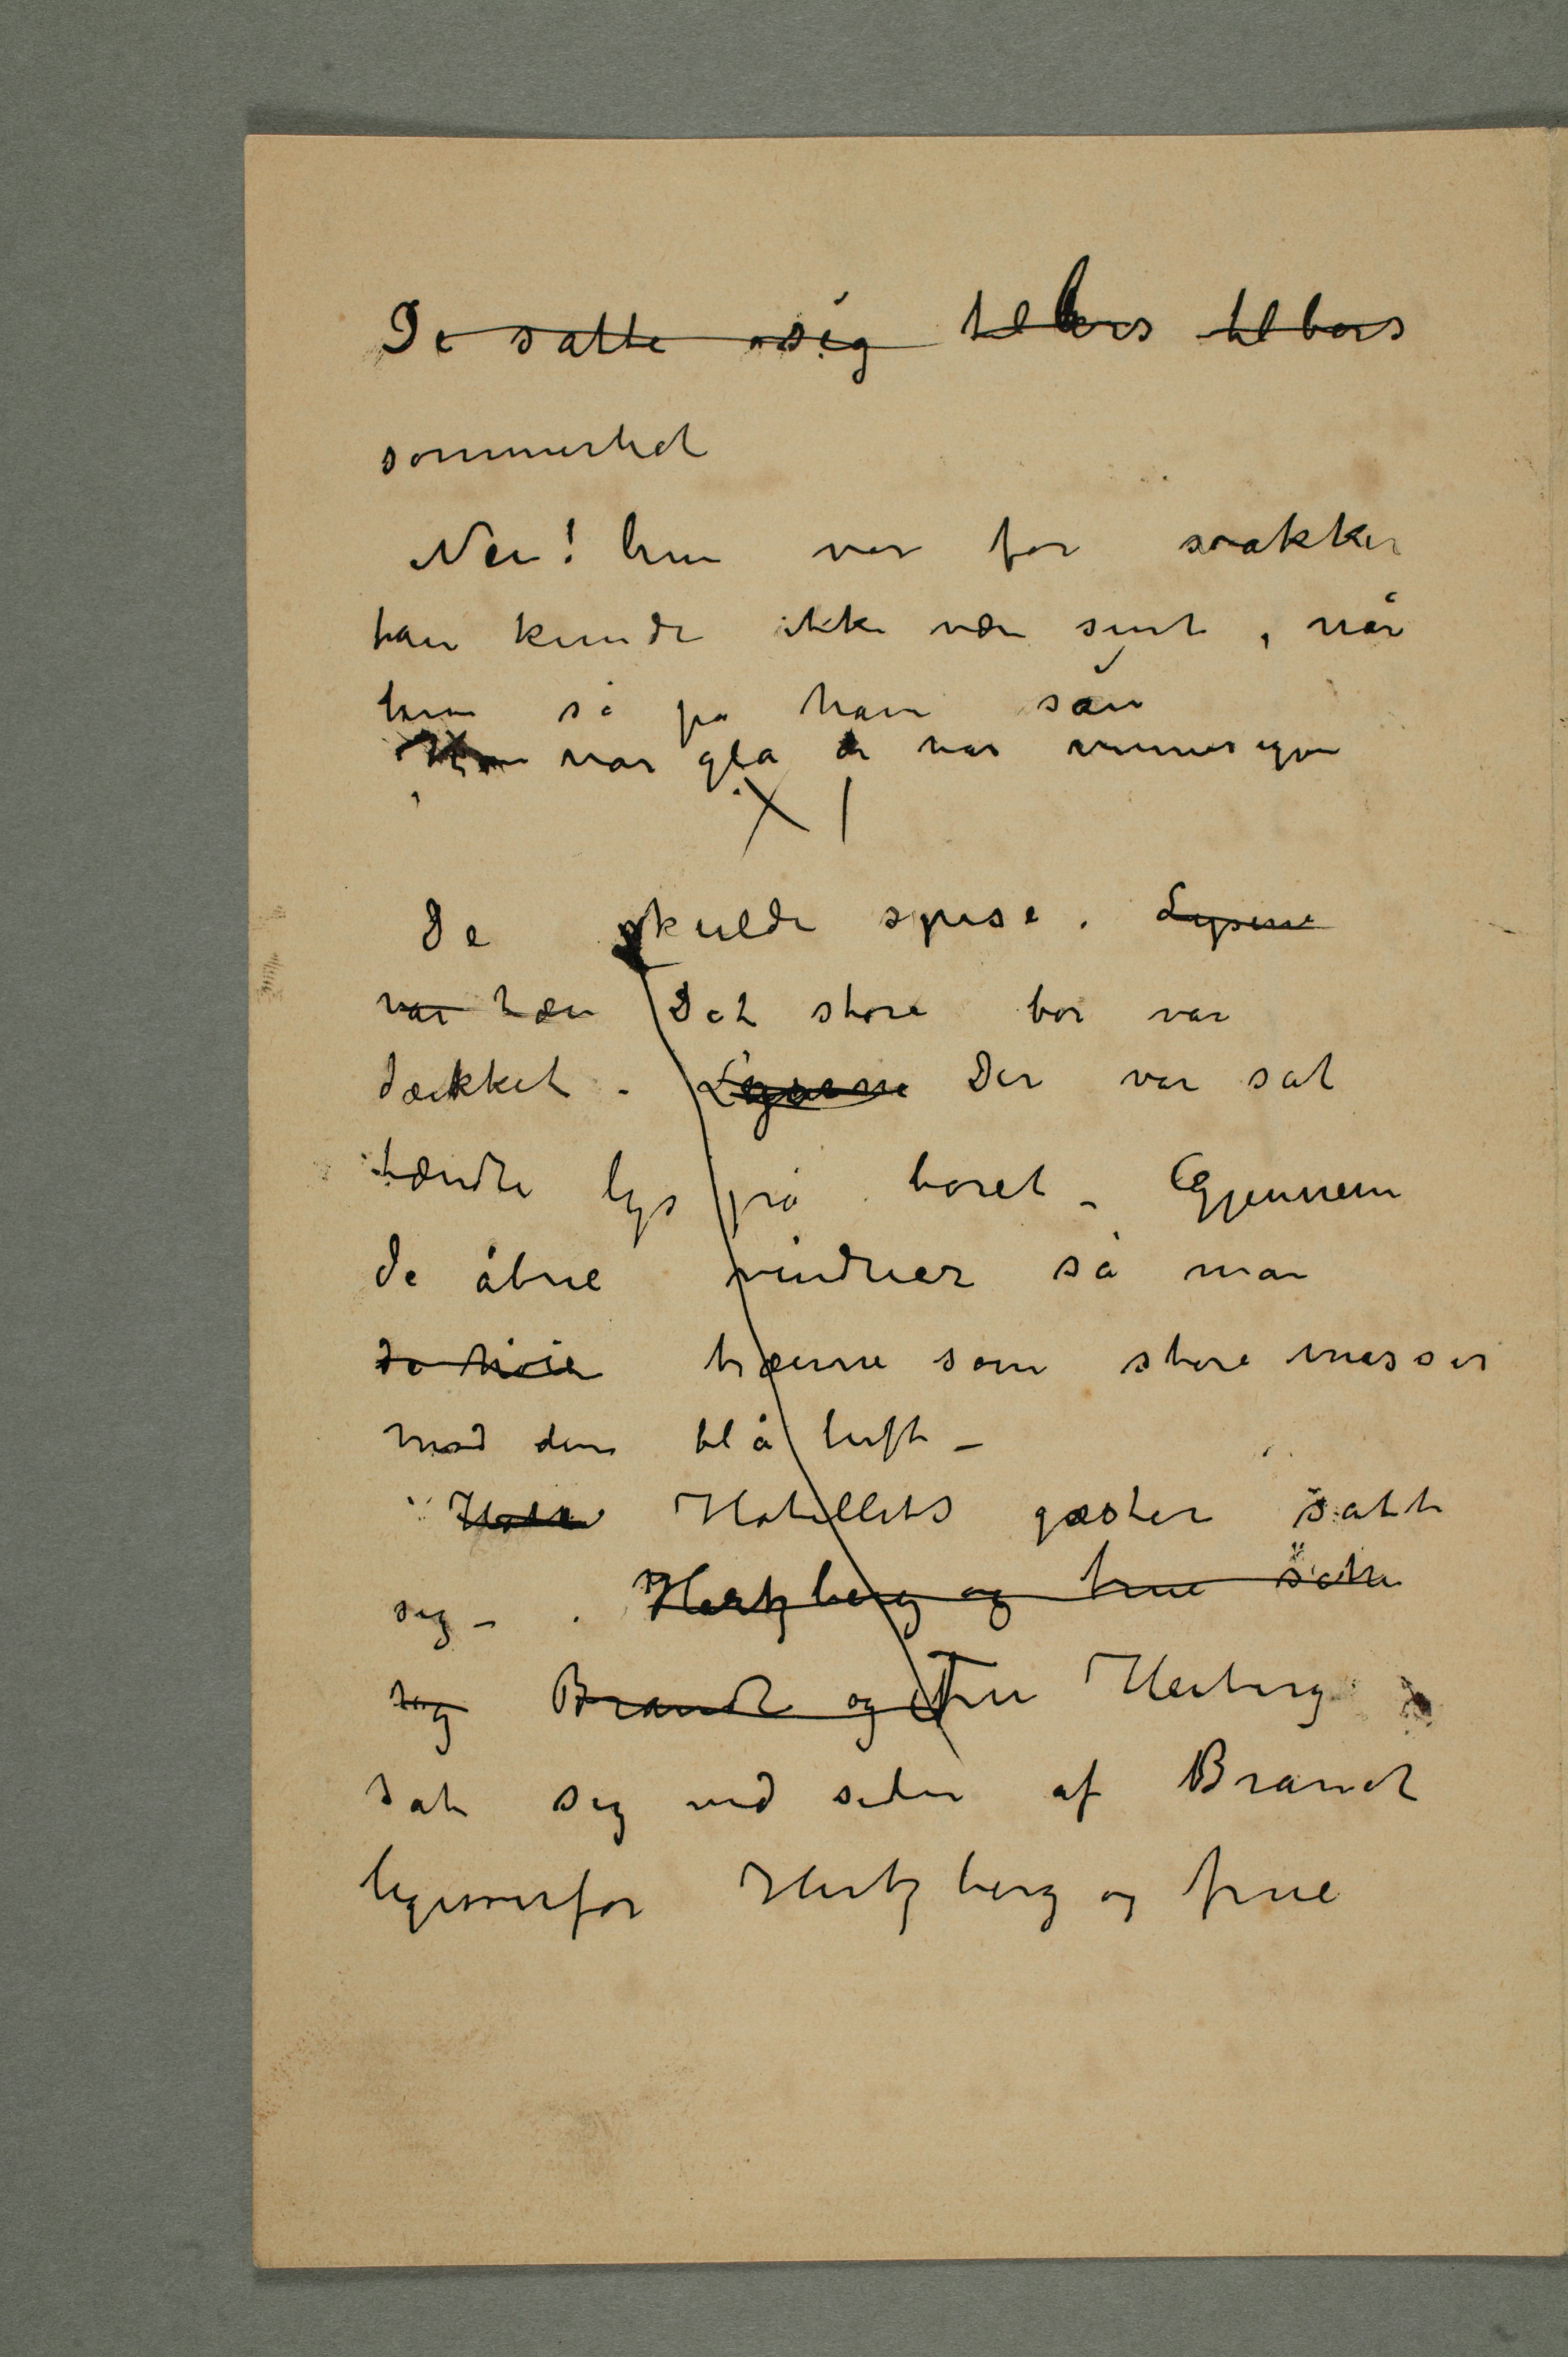 De satte sig til bors til bors
sommerhet
Nei! hun var for vakker
han kunde ikke være sint, når
hun så på ham sån
Han var gla de var venner igjen
XI
De skulde spise. Lysene
var tæn Det store bor var
dækket – Lysene Der var sat
tændte lys på boret – Gjennem
de åbne vinduer så man
de høie trærne som store masser
mod den blå luft –
Hote Hotellets gæster satte
sig – . Hertzberg og frue satte
sig Brandt og Fru Herberg
satte sig ved siden af Brandt
ligeoverfor Hertzberg og frue